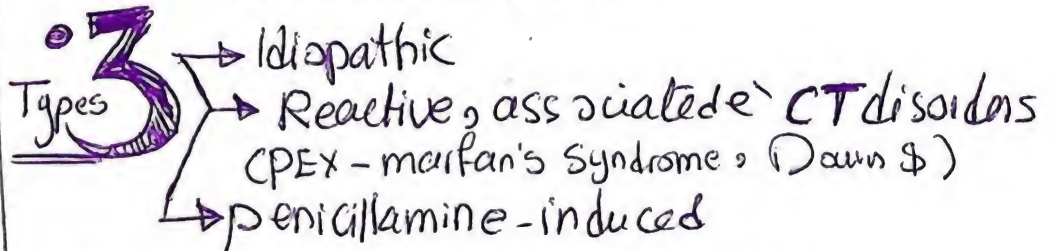 3 Types
Idiopathic
Reactive, associated e` CT disorders
(PEX - marfan's Syndrome, Down $)
penicillamine-induced